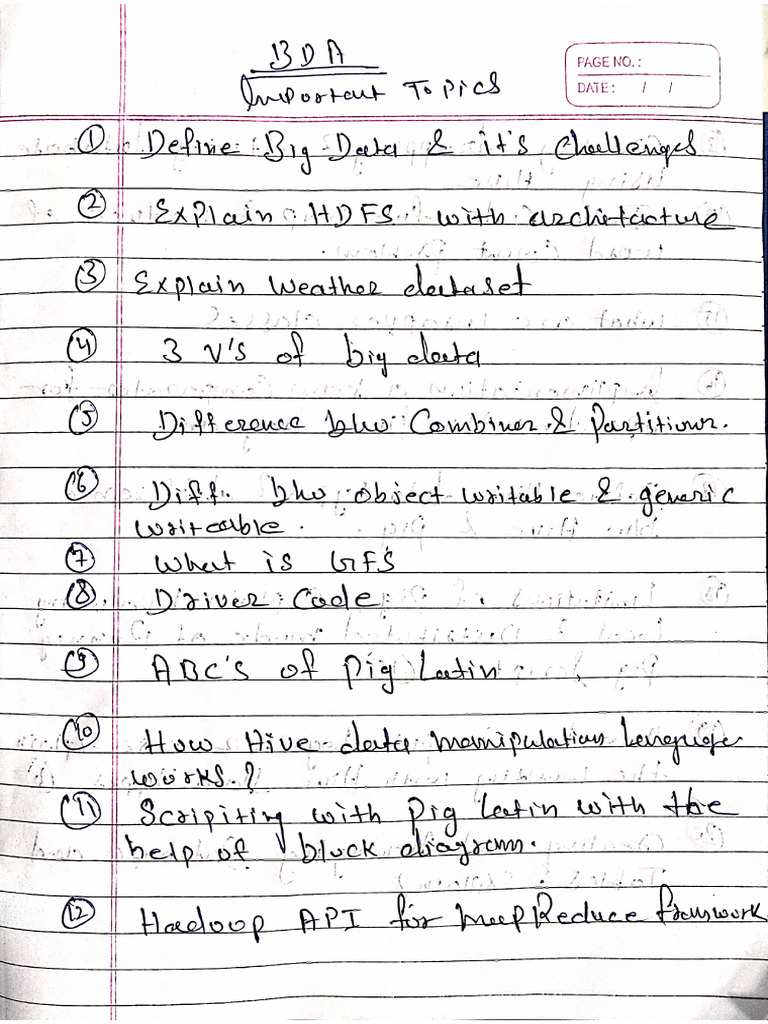 BDA
Important Topics
PAGE NO.:
DATE: / /
① Define Big Data & it's Challenges
② Explain HDFS with architacture
③ Explain Weather dataset
④ 3 V's of big data
⑤ Difference btw Combiner & Partitions.
⑥ Diff. btw object writable & generic
writeable.
⑦ What is GFS
⑧ Driver Code
⑨ ABC's of Pig Latin
⑩ How Hive data manipulation Language
works.?
⑪ Scripiting with Pig Latin with the
help of block diagram.
⑫ Hadoop API for MapReduce framework